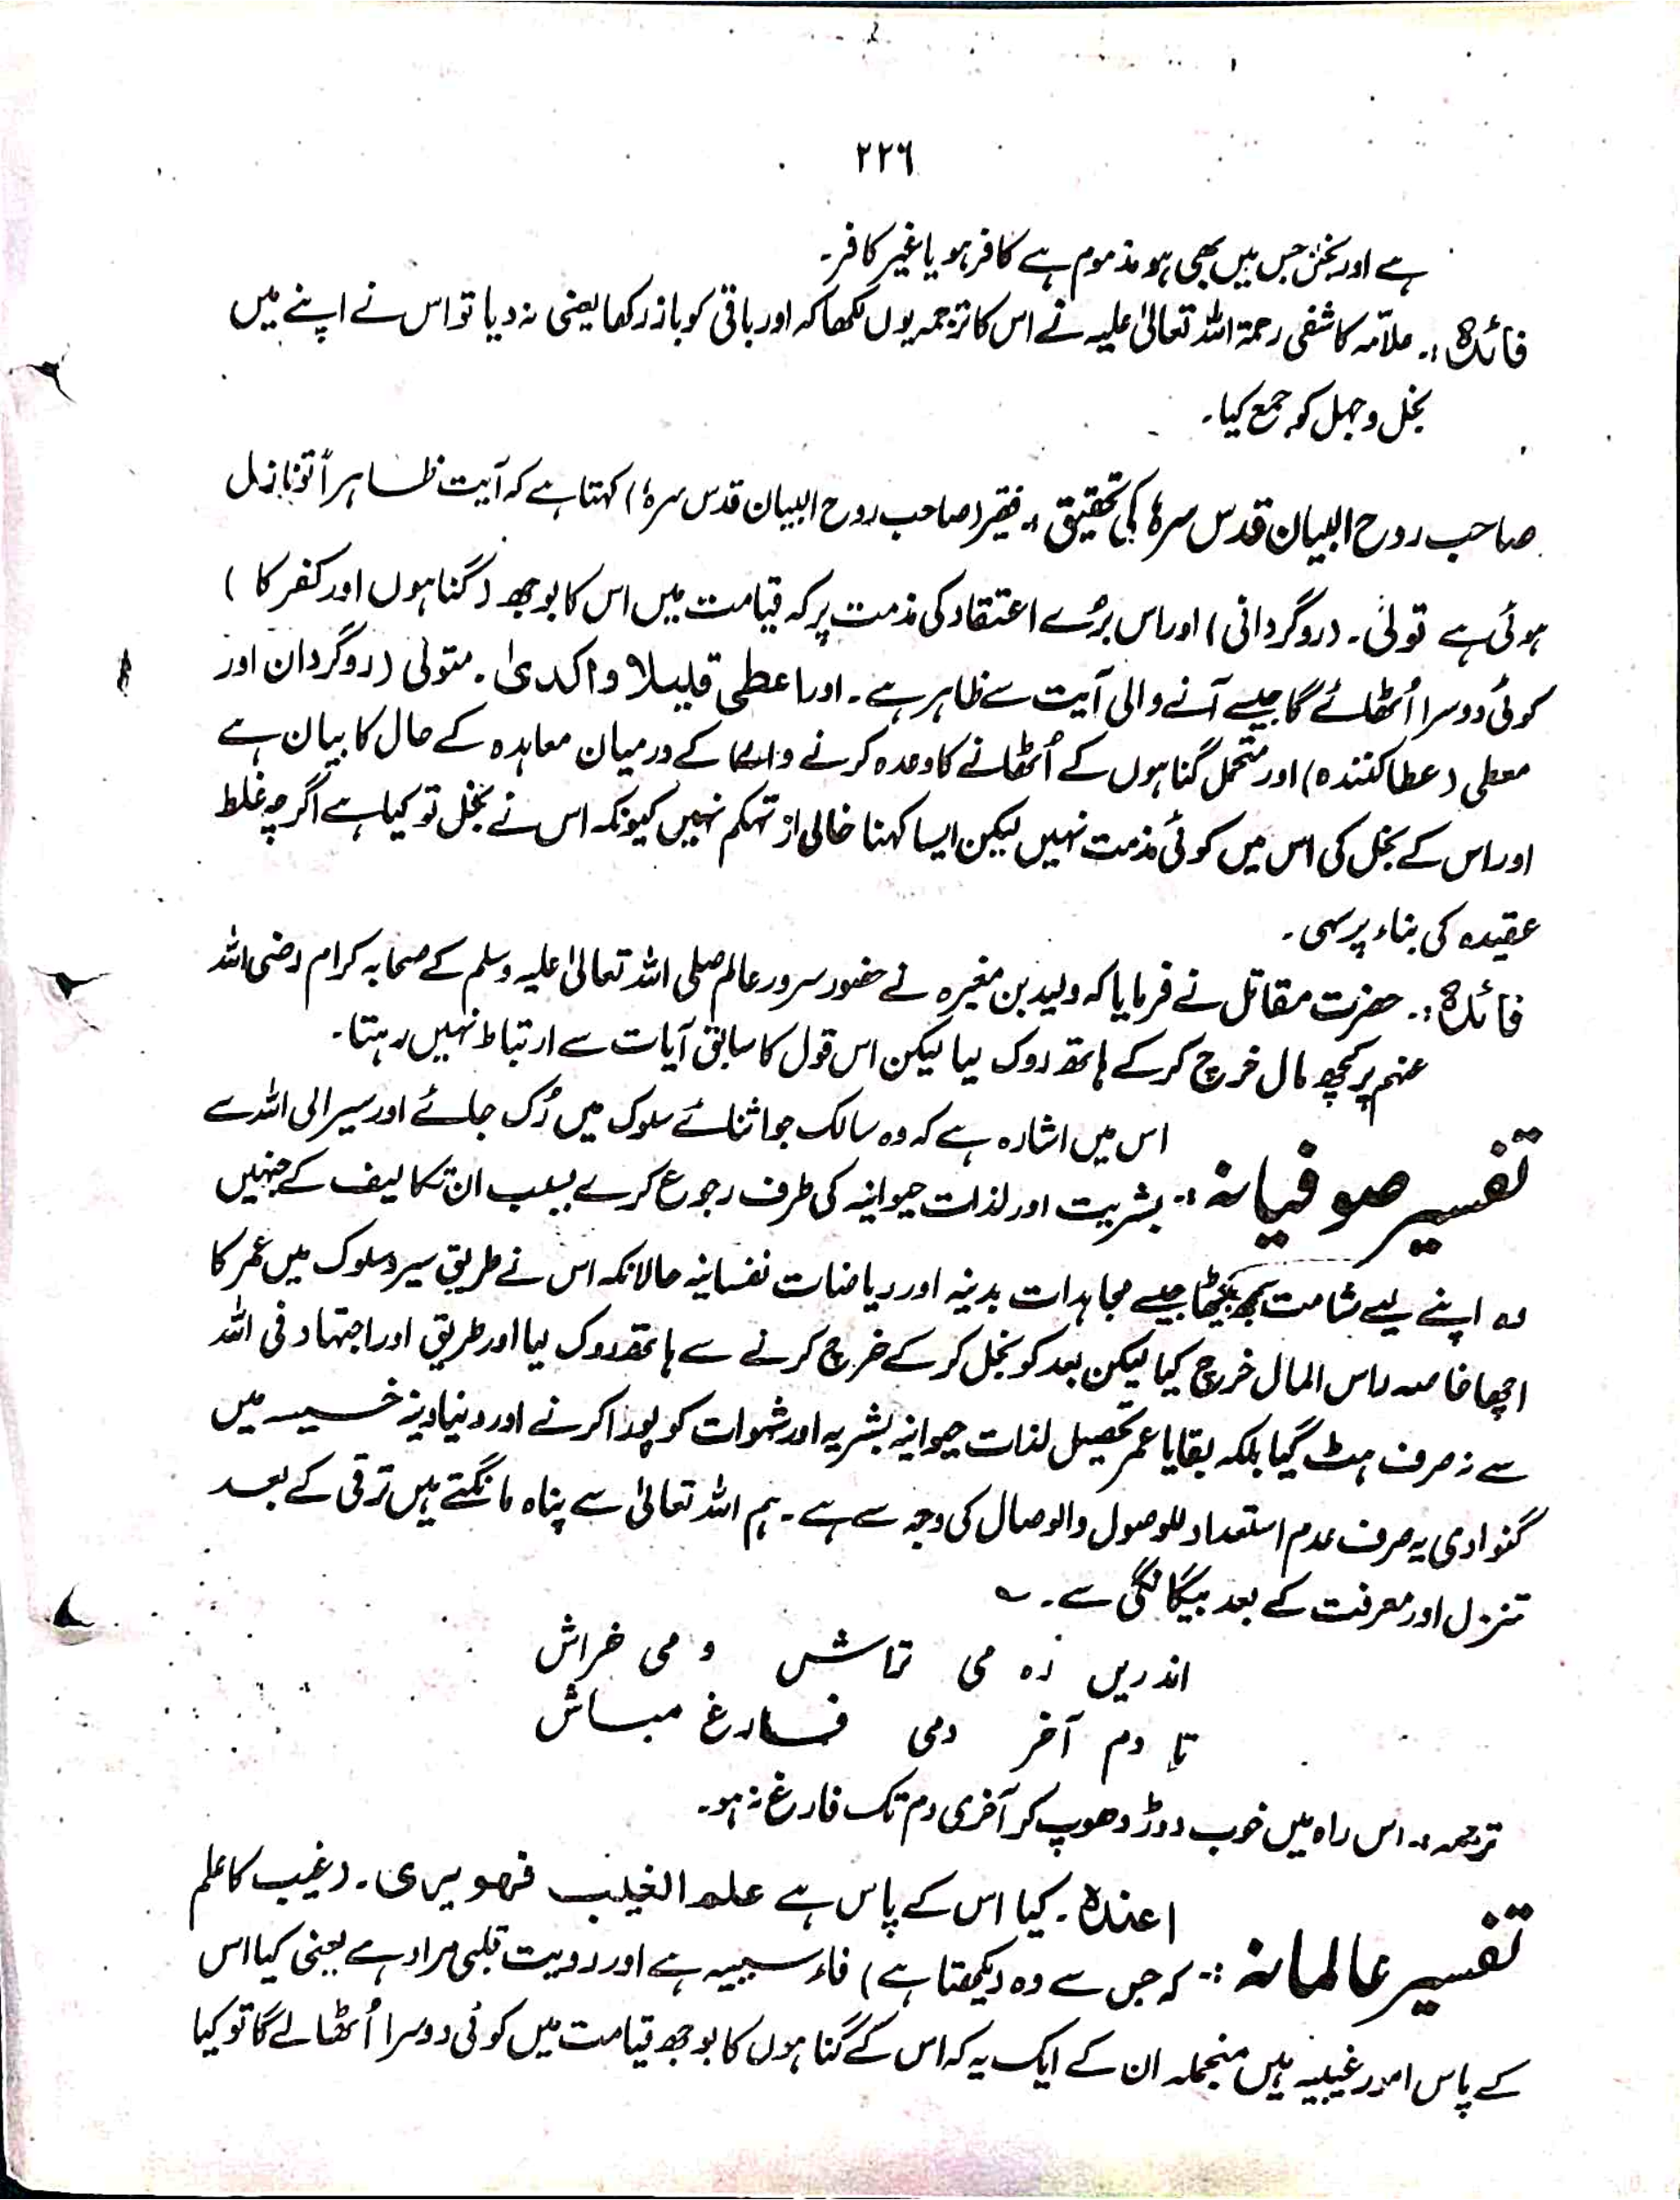 ۲۲۶
ہے اور بخل جس میں بھی ہو مذموم ہے کافر ہو یا غیر کافر۔
فائدہ :۔ علامہ کاشفی رحمۃ اللہ تعالیٰ علیہ نے اس کا ترجمہ یوں لکھا کہ اور باقی کو باز رکھا یعنی نہ دیا تو اس نے اپنے میں
بخل و جہل کو جمع کیا۔
صاحب روح البیان قدس سرہٗ کی تحقیق :۔ فقیر (صاحب روح البیان قدس سرہٗ) کہتا ہے کہ آیت ظاہراً تو نازل
ہوئی ہے تولیٰ۔ (روگردانی) اور اس بُرے اعتقاد کی مذمت پر کہ قیامت میں اس کا بوجھ (گناہوں اور کفر کا )
کوئی دوسرا اُٹھائے گا جیسے آنے والی آیت سے ظاہر ہے۔ اور اعطی قلیلا واکدیٰ۔ متولی (روگردان اور
معطی (عطا کنندہ) اور متحمل گناہوں کے اُٹھانے کا وعدہ کرنے والا کے درمیان معاہدہ کے حال کا بیان ہے
اور اس کے بخل کی اس میں کوئی مذمت نہیں لیکن ایسا کہنا خالی از تہکم نہیں کیونکہ اس نے بخل تو کیا ہے اگرچہ غلط
عقیدہ کی بناء پر سہی۔
فائدہ :۔ حضرت مقاتل نے فرمایا کہ ولید بن مغیرہ نے حضور سرور عالم صلی اللہ تعالیٰ علیہ وسلم کے صحابہ کرام رضی اللہ
عنہم پر کچھ مال خرچ کر کے ہاتھ روک لیا لیکن اس قول کا سابق آیات سے ارتباط نہیں رہتا۔
اس میں اشارہ ہے کہ وہ سالک جو اثنائے سلوک میں رُک جائے اور سیر الی اللہ سے
تفسیر صوفیانہ :۔ بشریت اور لذات حیوانیہ کی طرف رجوع کرے بسبب ان تکالیف کے جنہیں
وہ اپنے لیے شامت سمجھ بیٹھا جیسے مجاہدات بدنیہ اور ریاضات نفسانیہ حالانکہ اس نے طریق سیر و سلوک میں عمر کا
اچھا خاصہ راس المال خرچ کیا لیکن بعد کو بخل کر کے خرچ کرنے سے ہاتھ روک لیا اور طریق اور اجتہاد فی اللہ
سے نہ صرف ہٹ گیا بلکہ بقایا عمر تحصیل لذات حیوانیہ بشریہ اور شہوات کو پورا کرنے اور دنیاویہ خسیسہ میں
گنوا دی یہ صرف عدم استعداد للوصول والوصال کی وجہ سے ہے۔ ہم اللہ تعالیٰ سے پناہ مانگتے ہیں ترقی کے بعد
تنزل اور معرفت کے بعد بیگانگی سے۔ ؎
اندریں رہ می تراش و می خراش
تا دم آخر دمی فارغ مباش
ترجمہ :۔ اس راہ میں خوب دوڑ دھوپ کر آخری دم تک فارغ نہ ہو۔
اعندہٗ۔ کیا اس کے پاس ہے علم الغیب فھو یری۔ (غیب کا علم
تفسیر عالمانہ :۔ کہ جس سے وہ دیکھتا ہے) فاء سببیہ ہے اور رویت قلبی مراد ہے یعنی کیا اس
کے پاس امور غیبیہ ہیں منجملہ ان کے ایک یہ کہ اس کے گناہوں کا بوجھ قیامت میں کوئی دوسرا اُٹھالے گا تو کیا